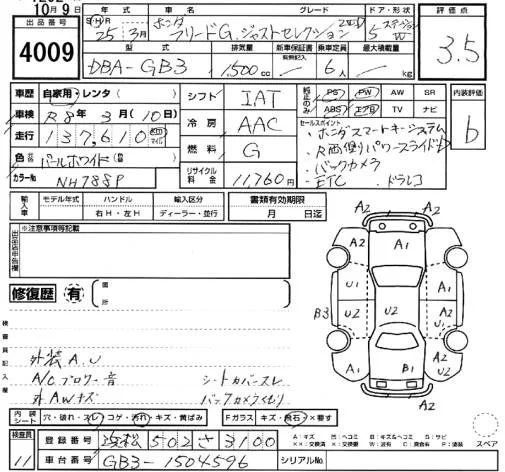 10月9日
出品番号
4009
年式 車名 グレード ドア・形状 評価点
S・H・R
25年3月 ホンダ フリードG.ジャストセレクション 2WD 5 W
3.5
型式 排気量 新車保証書 乗車定員 最大積載量
有無記入
DBA-GB3 1500cc 6人 kg
車歴 自家用・レンタ()
車検 R8年3月(10日)
走行 137,610 km マイル
色 パールホワイト()
カラーNo NH788P
シフト IAT
冷房 AAC
燃料 G
リサイクル料金 11,760円
純正のみ
PS PW AW SR
ABS エアB TV ナビ
内装評価
b
セールスポイント
・ホンダスマートキーシステム
・R両側パワースライドドア
・バックカメラ
・ETC ・ドラレコ
輸入車 モデル年式 ハンドル 輸入区分
右H・左H ディーラー・並行
書類有効期限
月 日迄
出品店申告欄
※注意事項等記載
修復歴 有
箇所
検査員記入欄
外装A.U
A/Cブロワー音 シートカバースレ
外AWキズ バックカメラくもり
A2 A2
A2 A1 A2
U1 A1
B3 U2 U2
U2 A1
A2 B1 A2
A2
内装シート 穴・破れ・スレ・コゲ・汚れ・キズ・黄ばみ
Fガラス キズ・飛石・×要す
検査員
11
登録番号 浜松 502 さ 3100
車台番号 GB3-1504596
シリアルNo
A:キズ U:ヘコミ B:キズ&ヘコミ S:サビ
スペア